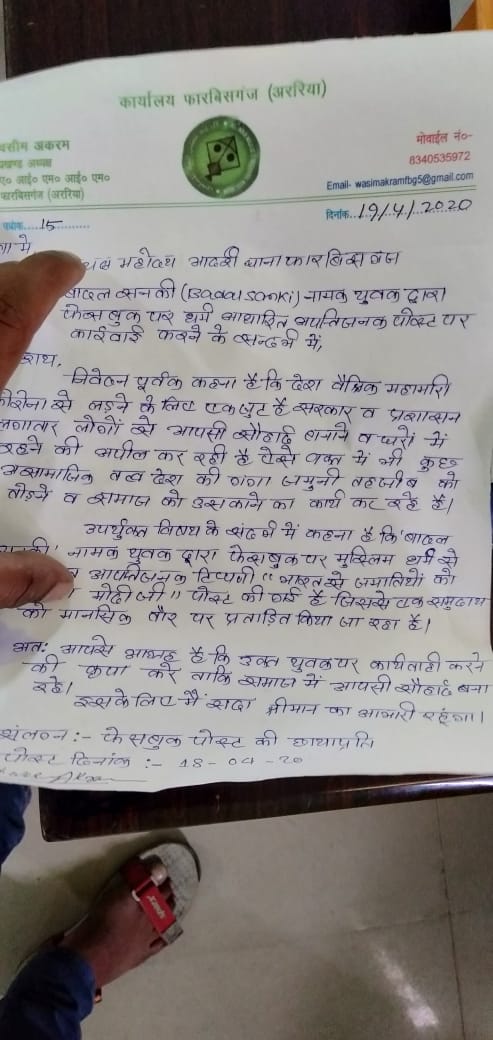 कार्यालय फारबिसगंज (अररिया)
वसीम अकरम
प्रखण्ड अध्यक्ष
ए० आई० एम० आई० एम०
फारबिसगंज (अररिया)
मोबाईल नं०-
8340535972
Email- wasimakramfbg5@gmail.com
पत्रांक.....15..........
दिनांक..19/4/2020
महोदय आदर्श थाना फारबिसगंज
बादल सनकी (Badal sanki) नामक युवक द्वारा
फेसबुक पर धर्म आधारित आपत्तिजनक पोस्ट पर
कार्रवाई करने के सन्दर्भ में,
निवेदन पूर्वक कहना है कि देश वैश्विक महामारी
कोरोना से लड़ने के लिए एकजुट है सरकार व प्रशासन
लगातार लोगों से आपसी सौहार्द बनाने व घरों में
रहने की अपील कर रही है ऐसे वक्त में भी कुछ
असामाजिक तत्व देश की गंगा जमुनी तहजीब को
तोड़ने व समाज को उसकाने का कार्य कर रहे हैं।
उपर्युक्त विषय के संदर्भ में कहना है कि 'बादल
नामक युवक द्वारा फेसबुक पर मुस्लिम धर्म से
आपत्तिजनक टिप्पणी "भारत से जमातियों को
मोदी जी" पोस्ट की गई है जिससे एक समुदाय
को मानसिक तौर पर प्रताड़ित किया जा रहा है।
अतः आपसे आग्रह है कि उक्त युवक पर कार्यवाही करने
की कृपा करें ताकि समाज में आपसी सौहार्द बना
रहे।
इसके लिए मैं सदा श्रीमान का आभारी रहूंगा।
संलग्न :- फेसबुक पोस्ट की छायाप्रति
पोस्ट दिनांक :- 18-04-20